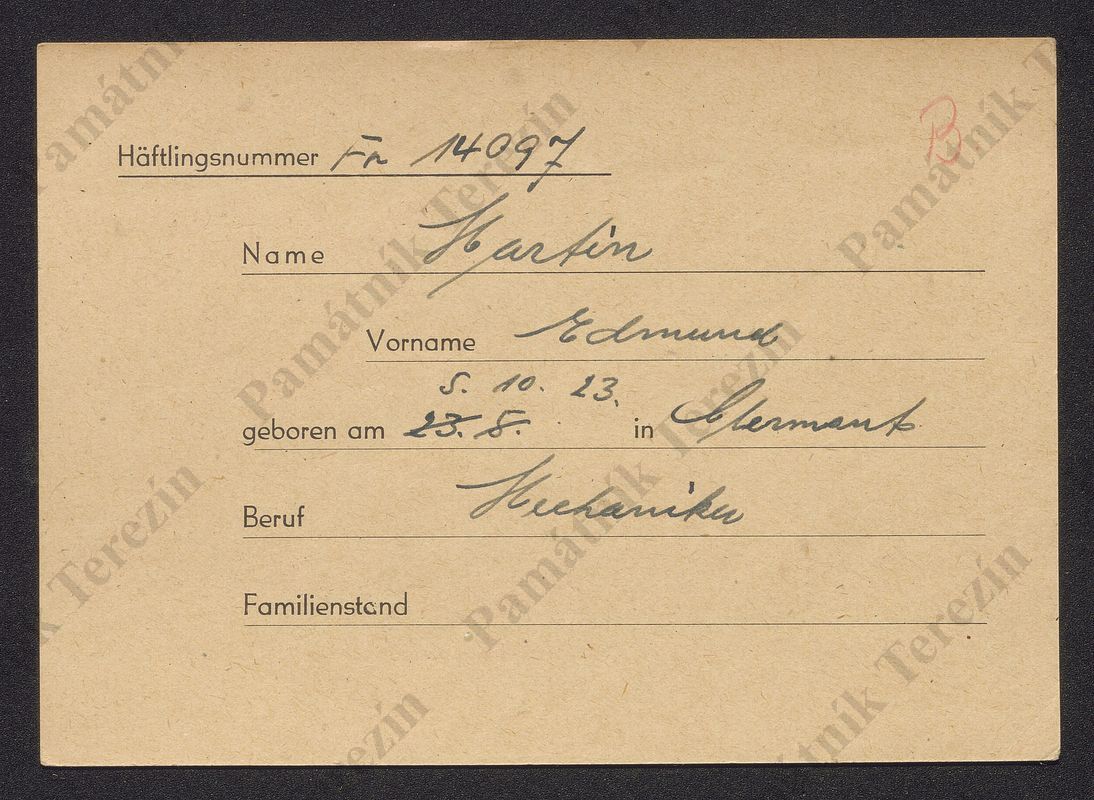 B
Häftlingsnummer Fr 14097
Name Martin
Vorname Edmund
5. 10. 23.
geboren am 23. 8. in Clermont
Beruf Mechaniker
Familienstand
Památník Terezín